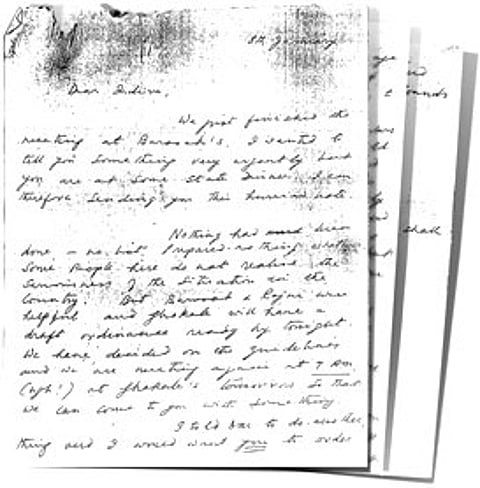 8th January
Dear Indira,
We just finished the
meeting at Barooah's. I wanted to
tell you something very urgently but
you are at some State Dinner. I am
therefore sending you this hurried note.
Nothing had been
done - no list prepared - nothing whatever.
Some people here do not realise the
seriousness of the situation in the
Country. But Barooah & Rajni were
helpful and Gokhale will have a
draft ordinance ready by tonight.
We have decided on the guidelines
and we are meeting again at 9 AM
(ugh!) at Gokhale's tomorrow so that
we can come to you with something.
I told to do another
thing and I would want you to order
shall